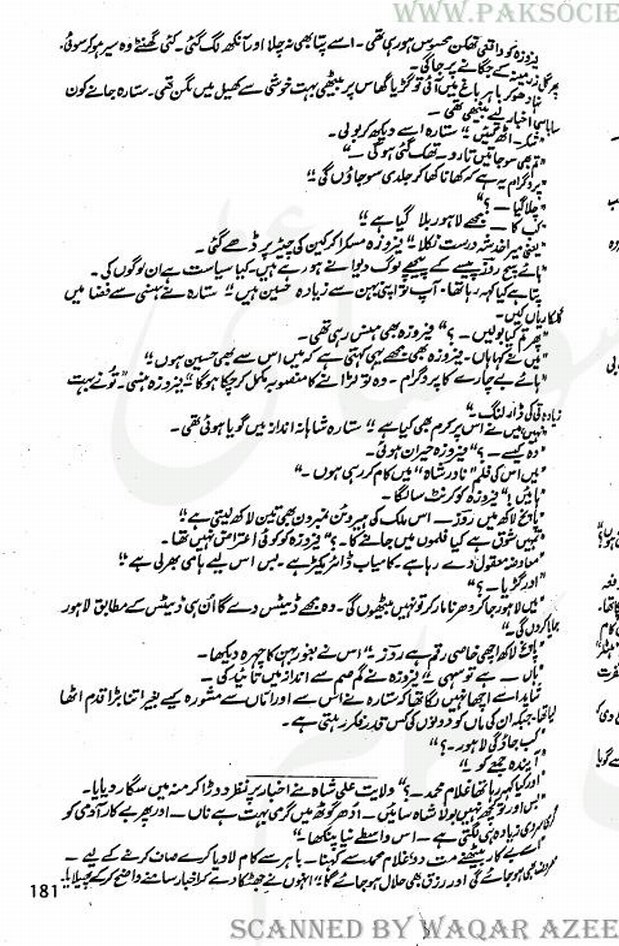 WWW.PAKSOCIE
فیروزہ کو واقعی تھکن محسوس ہو رہی تھی۔ اسے پتا بھی نہ چلا اور آنکھ لگ گئی۔ کئی گھنٹے وہ سیر ہو کر سوئی۔
پھر گل زرمینہ کے جگانے پر جاگی۔
نہا دھو کر باہر باغ میں آئی تو گڑیا گھاس پر بیٹھی بہت خوشی سے کھیل میں مگن تھی۔ ستارہ جانے کون
سا باسی اخبار لیے بیٹھی تھی۔
"شکر۔ اٹھ گئیں۔" ستارہ اسے دیکھ کر بولی۔
"تم بھی سو جاتیں تارو۔ تھک گئی ہو گی۔"
"پروگرام یہ ہے کہ کھانا کھا کر جلدی سو جاؤں گی۔"
"چلا گیا—؟"
"کب کا— مجھے لاہور بلا گیا ہے۔"
"یعنی میرا خدشہ درست نکلا۔" فیروزہ مسکرا کر کین کی چیئر پر ڈھے گئی۔
"ہائے بیچ روزؔ پیسے کے پیچھے لوگ دیوانے ہو رہے ہیں۔ کیا سیاست ہے ان لوگوں کی۔
پتا ہے کیا کہہ رہا تھا۔ آپ تو اپنی بہن سے زیادہ حسین ہیں۔" ستارہ نے ہنسی سے فضا میں
گلکاریاں کیں۔
"پھر تم کیا بولیں—؟" فیروزہ بھی ہنس رہی تھی۔
"میں نے کہا ہاں۔ فیروزہ بھی مجھے یہی کہتی ہے کہ میں اس سے بھی حسین ہوں۔"
"ہائے بے چارے کا پروگرام۔ وہ تو لڑانے کا منصوبہ مکمل کر چکا ہو گا۔" فیروزہ ہنسی۔ "تو نے بہت
زیادتی کی ڈارلنگ۔"
"نہیں میں نے اس پر کرم بھی کیا ہے۔" ستارہ شاہانہ انداز میں گویا ہوئی تھی۔
"وہ کیسے—؟" فیروزہ حیران ہوئی۔
"میں اس کی فلم "نادر شاہ" میں کام کر رہی ہوں۔"
"ہائیں!" فیروزہ کو کرنٹ سا لگا۔
"پانچ لاکھ میں روزؔ— اس ملک کی ہیروئن نمبرون بھی تین لاکھ لیتی ہے۔"
"تمہیں شوق ہے کیا فلموں میں جانے کا۔؟" فیروزہ کو کوئی اعتراض نہیں تھا۔
"معاوضہ معقول دے رہا ہے۔ کامیاب ڈائریکٹر ہے۔ بس اس لیے ہامی بھر لی ہے۔"
"اور گڑیا—؟"
"میں لاہور جا کر دھرنا مار کر تو نہیں بیٹھوں گی۔ وہ مجھے ڈیٹس دے گا اُن ہی ڈیٹس کے مطابق لاہور
جایا کروں گی۔"
"پانچ لاکھ اچھی خاصی رقم ہے روزؔ۔" اس نے بغور بہن کا چہرہ دیکھا۔
"ہاں— ہے تو سہی۔" فیروزہ نے گم صم سے انداز میں تائید کی—
شاید اسے اچھا نہیں لگا تھا کہ ستارہ نے اس سے اور اماں سے مشورہ کیے بغیر اتنا بڑا قدم اٹھا
لیا تھا۔ جبکہ ان کی ماں کو دونوں کی کس قدر فکر رہتی ہے۔
"کب جاؤ گی لاہور۔؟"
"آئندہ جمعے کو۔"
"اور کیا کہہ رہا تھا غلام محمد—؟" ولایت علی شاہ نے اخبار پر نظر دوڑا کر منہ میں سگار دبایا۔
"بس اور تو کچھ نہیں بولا شاہ سائیں— اُدھر گوٹھ میں گرمی بہت ہے ناں— اور پھر بے کار آدمی کو
گرمی سردی زیادہ ہی لگتی ہے— اس واسطے نیا پنکھا—"
"اسے بے کار بیٹھنے مت دو۔ غلام محمد سے کہنا۔ باہر سے کام لا دیا کرے صاف کرنے کے لیے—
مصروف بھی ہو جائے گی اور رزق بھی حلال ہو جائے گا۔" انہوں نے جھٹکا دے کر اخبار سامنے واضح کر کے پھیلایا۔
181
SCANNED BY WAQAR AZEE